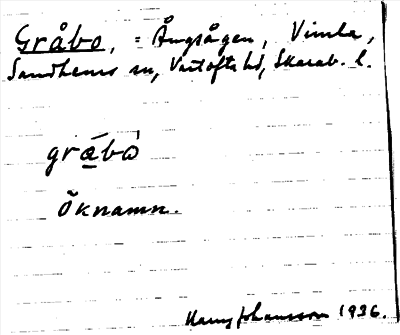 Gråbo, = Ångsågen, Vimla,
Sandhems sn, Vartofta hd, Skarab. l.
gråbò
Öknamn.
Harry Johansson 1936.